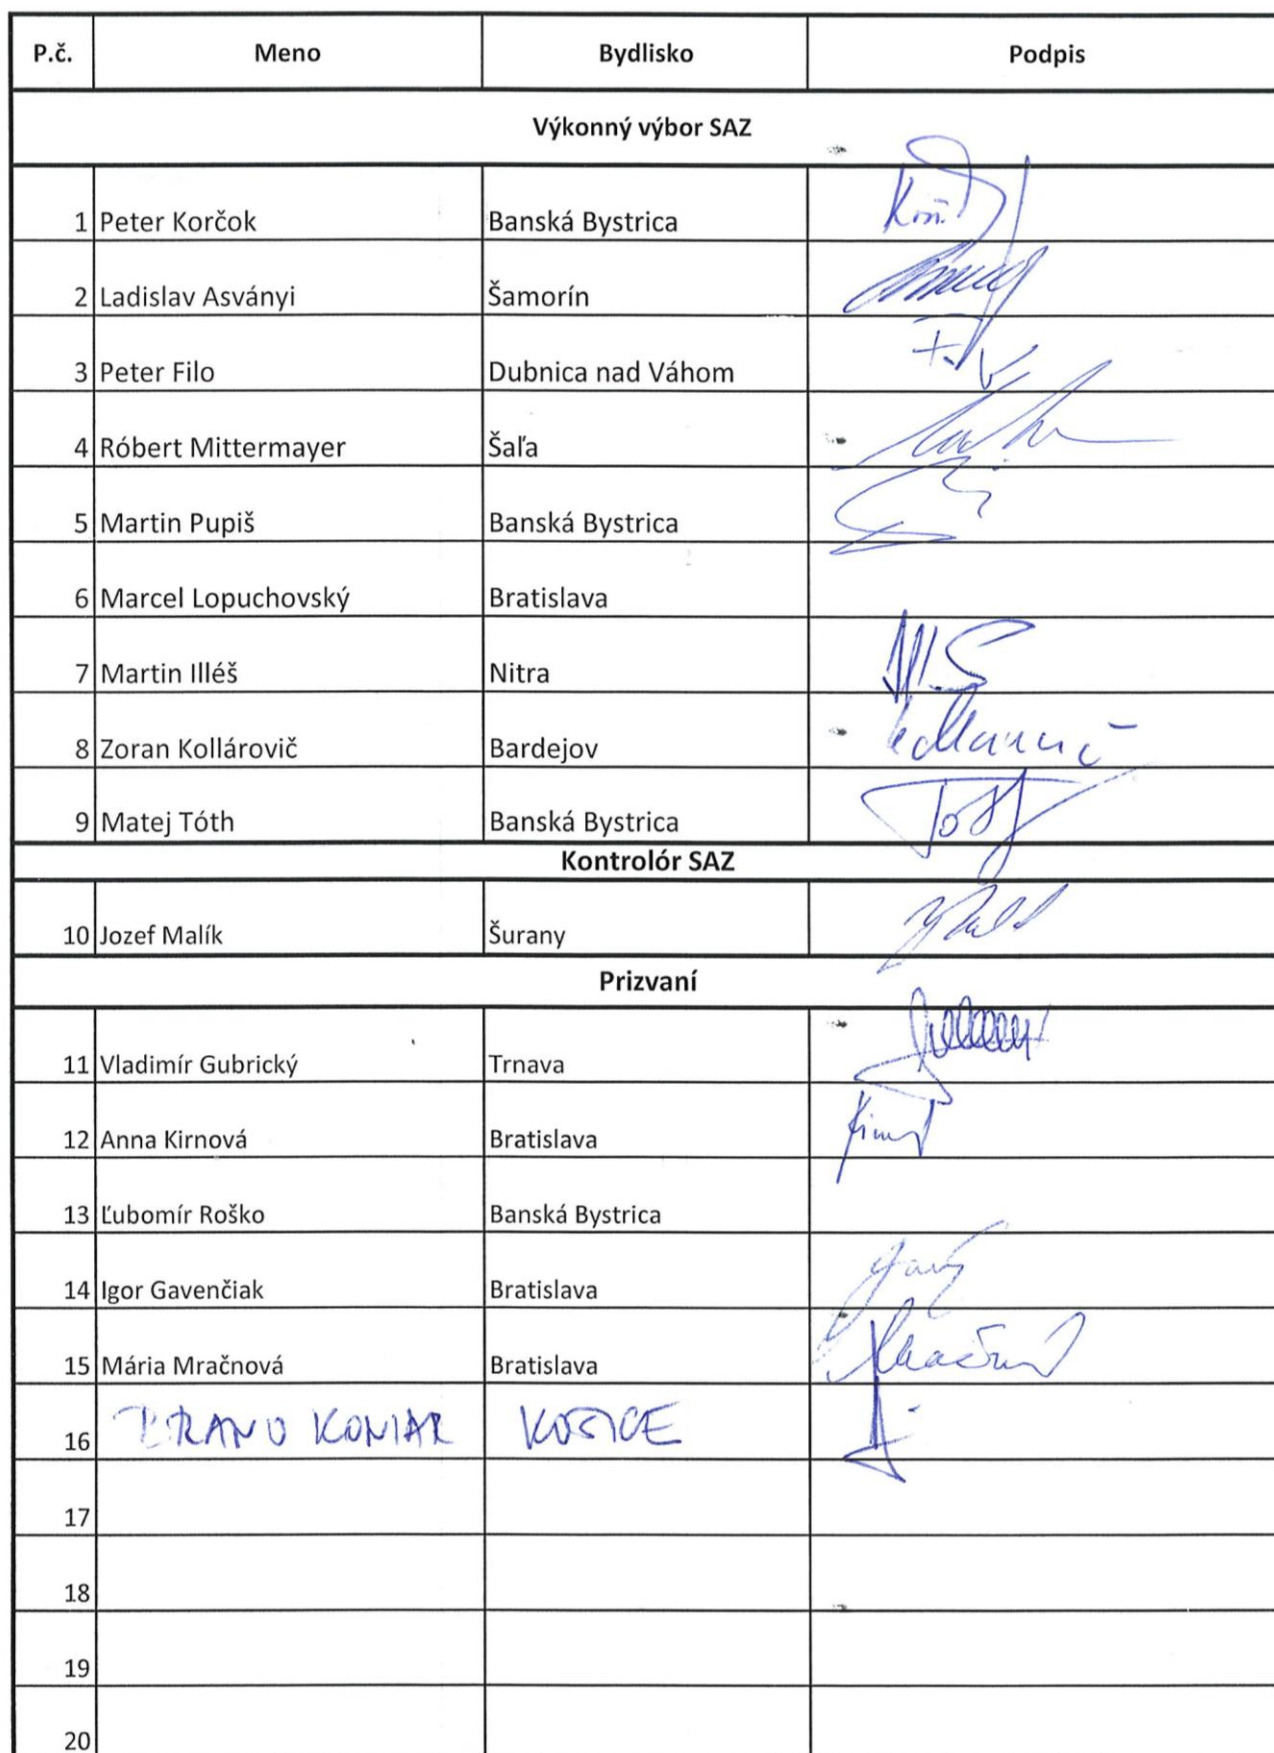 P.č. Meno Bydlisko Podpis
Výkonný výbor SAZ
1 Peter Korčok Banská Bystrica
2 Ladislav Asványi Šamorín
3 Peter Filo Dubnica nad Váhom
4 Róbert Mittermayer Šaľa
5 Martin Pupiš Banská Bystrica
6 Marcel Lopuchovský Bratislava
7 Martin Illéš Nitra
8 Zoran Kollárovič Bardejov
9 Matej Tóth Banská Bystrica
Kontrolór SAZ
10 Jozef Malík Šurany
Prizvaní
11 Vladimír Gubrický Trnava
12 Anna Kirnová Bratislava
13 Ľubomír Roško Banská Bystrica
14 Igor Gavenčiak Bratislava
15 Mária Mračnová Bratislava
16 KONIAR KOŠICE
17
18
19
20